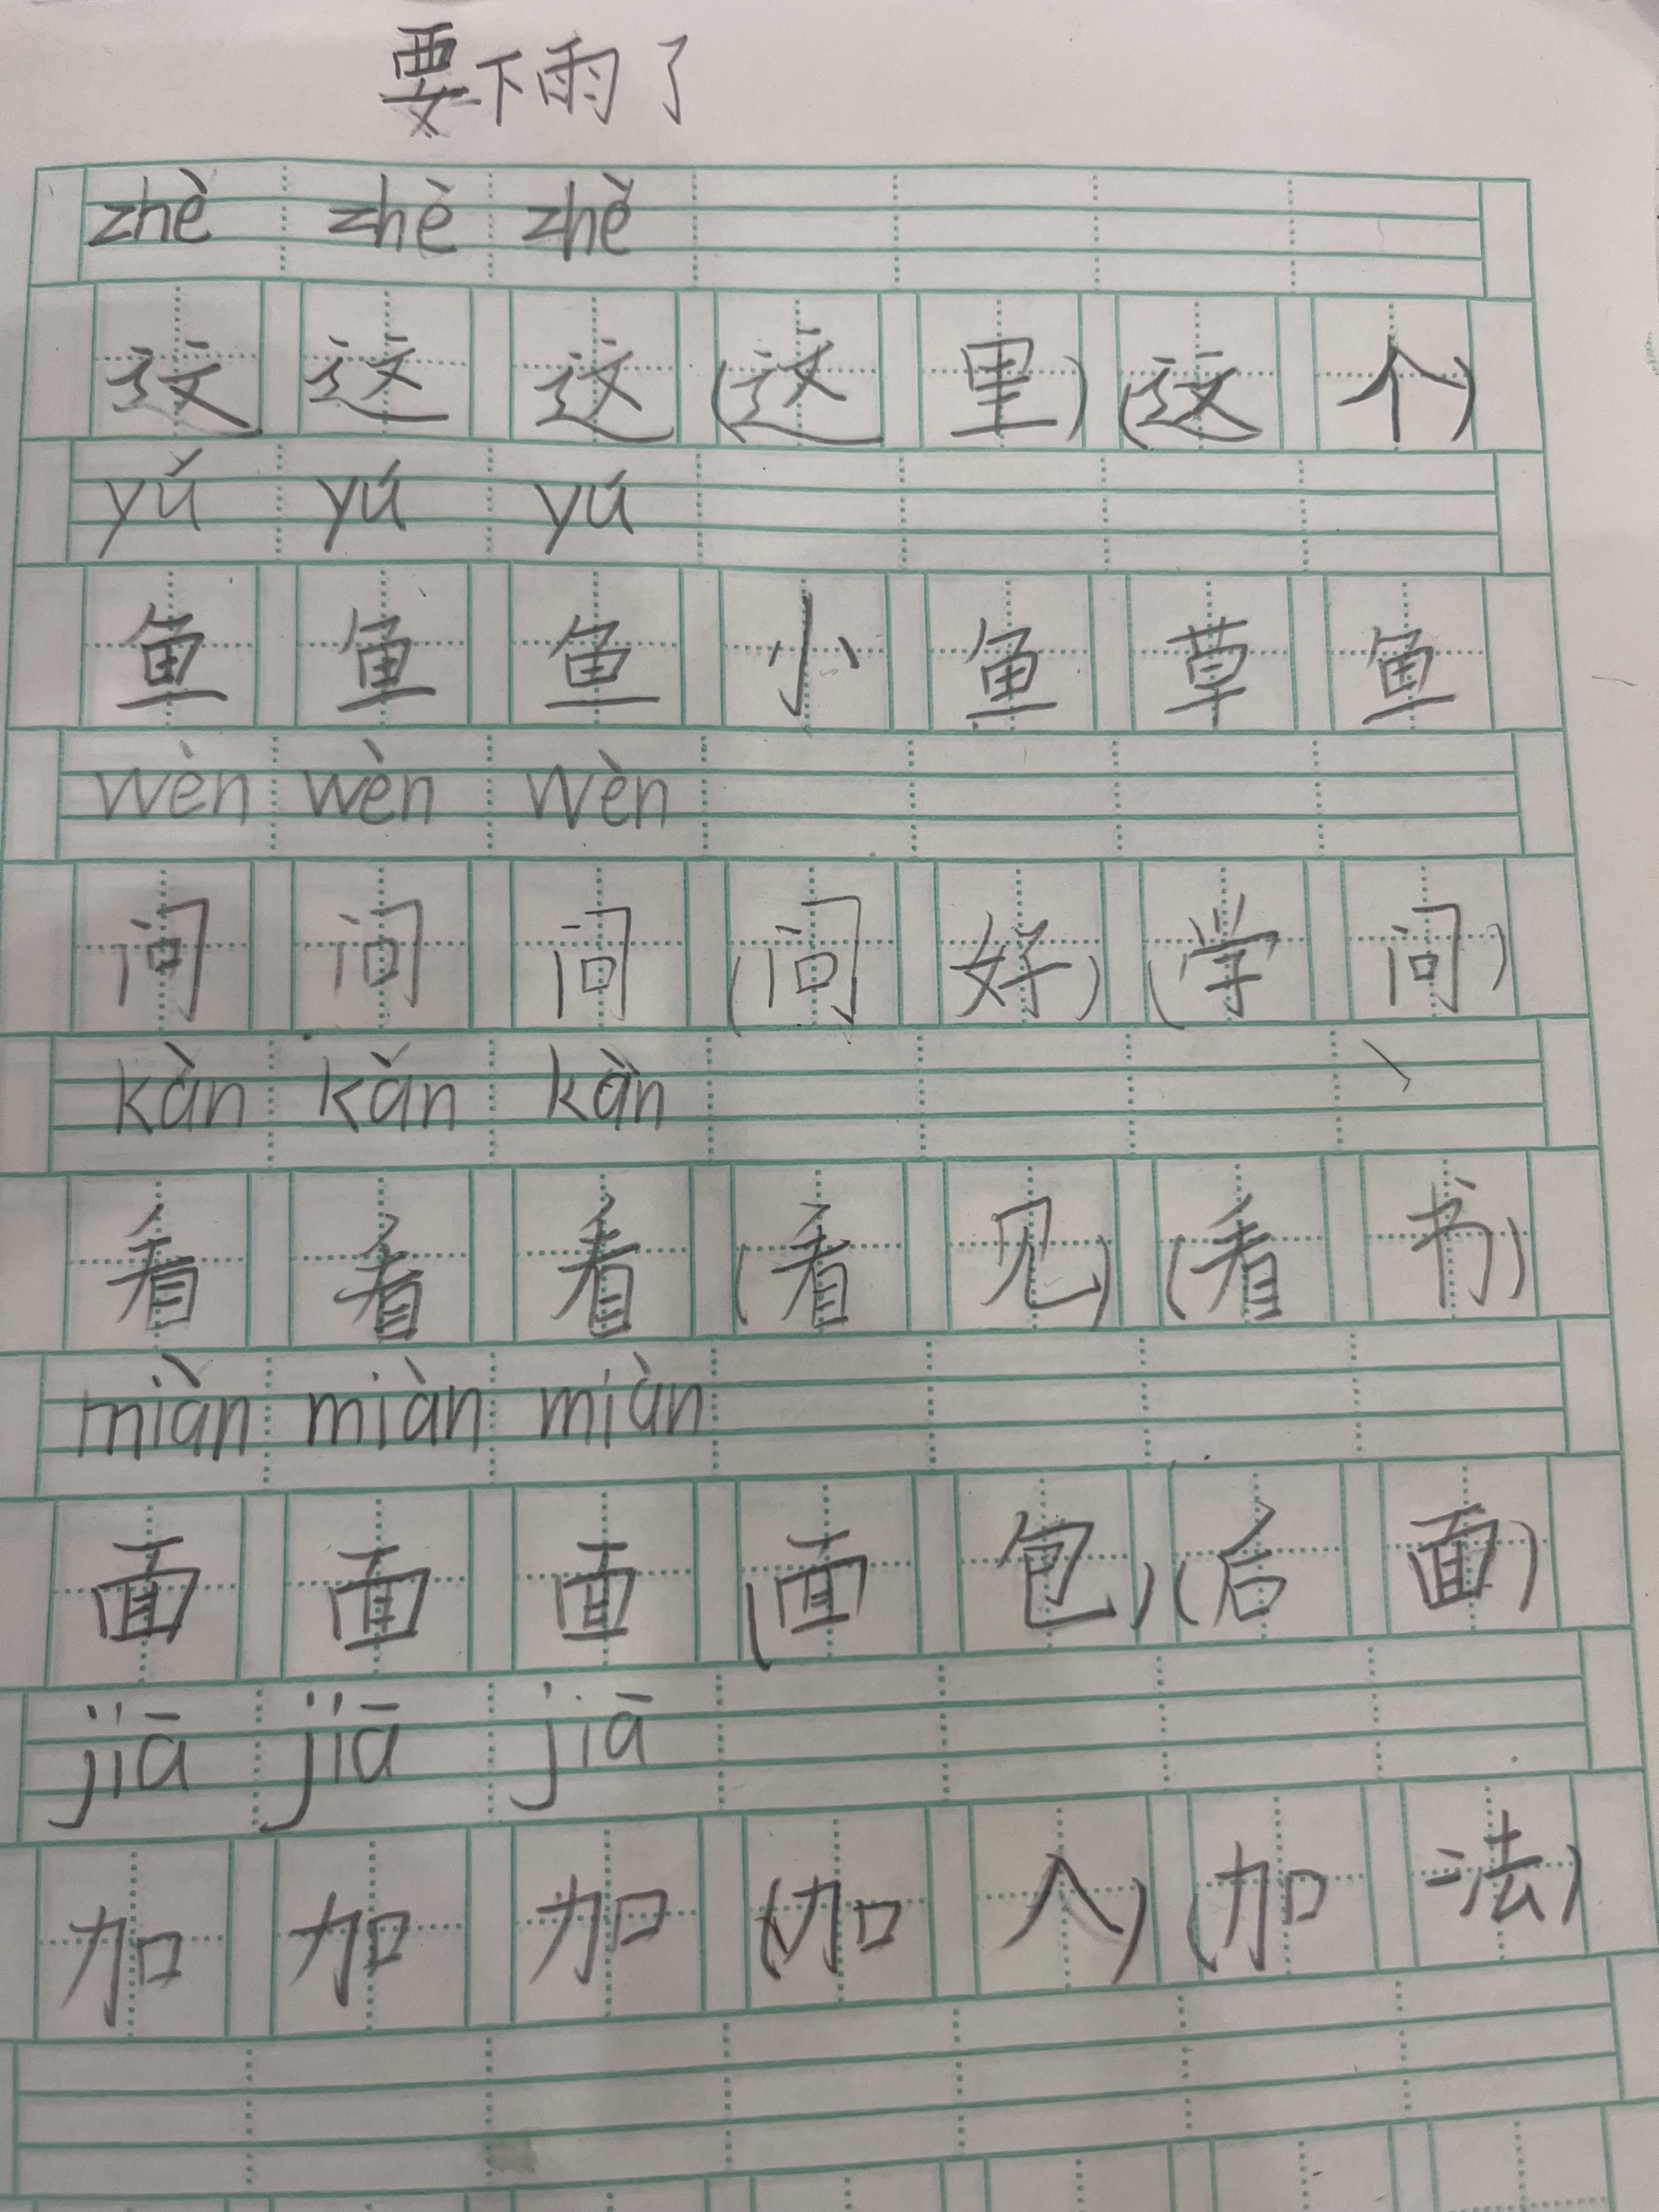 要下雨了
zhè zhè zhě
这 这 这 (这 里) (这 个)
yǔ yú yú
鱼 鱼 鱼 小 鱼 草 鱼
wèn wèn wèn
问 问 问 (问 好) (学 问)
kàn kǎn kàn
看 看 看 (看 见) (看 书)
miàn miàn miàn
面 面 面 (面 包) (后 面)
jiā jiā jiā
加 加 加 (加 入) (加 法)